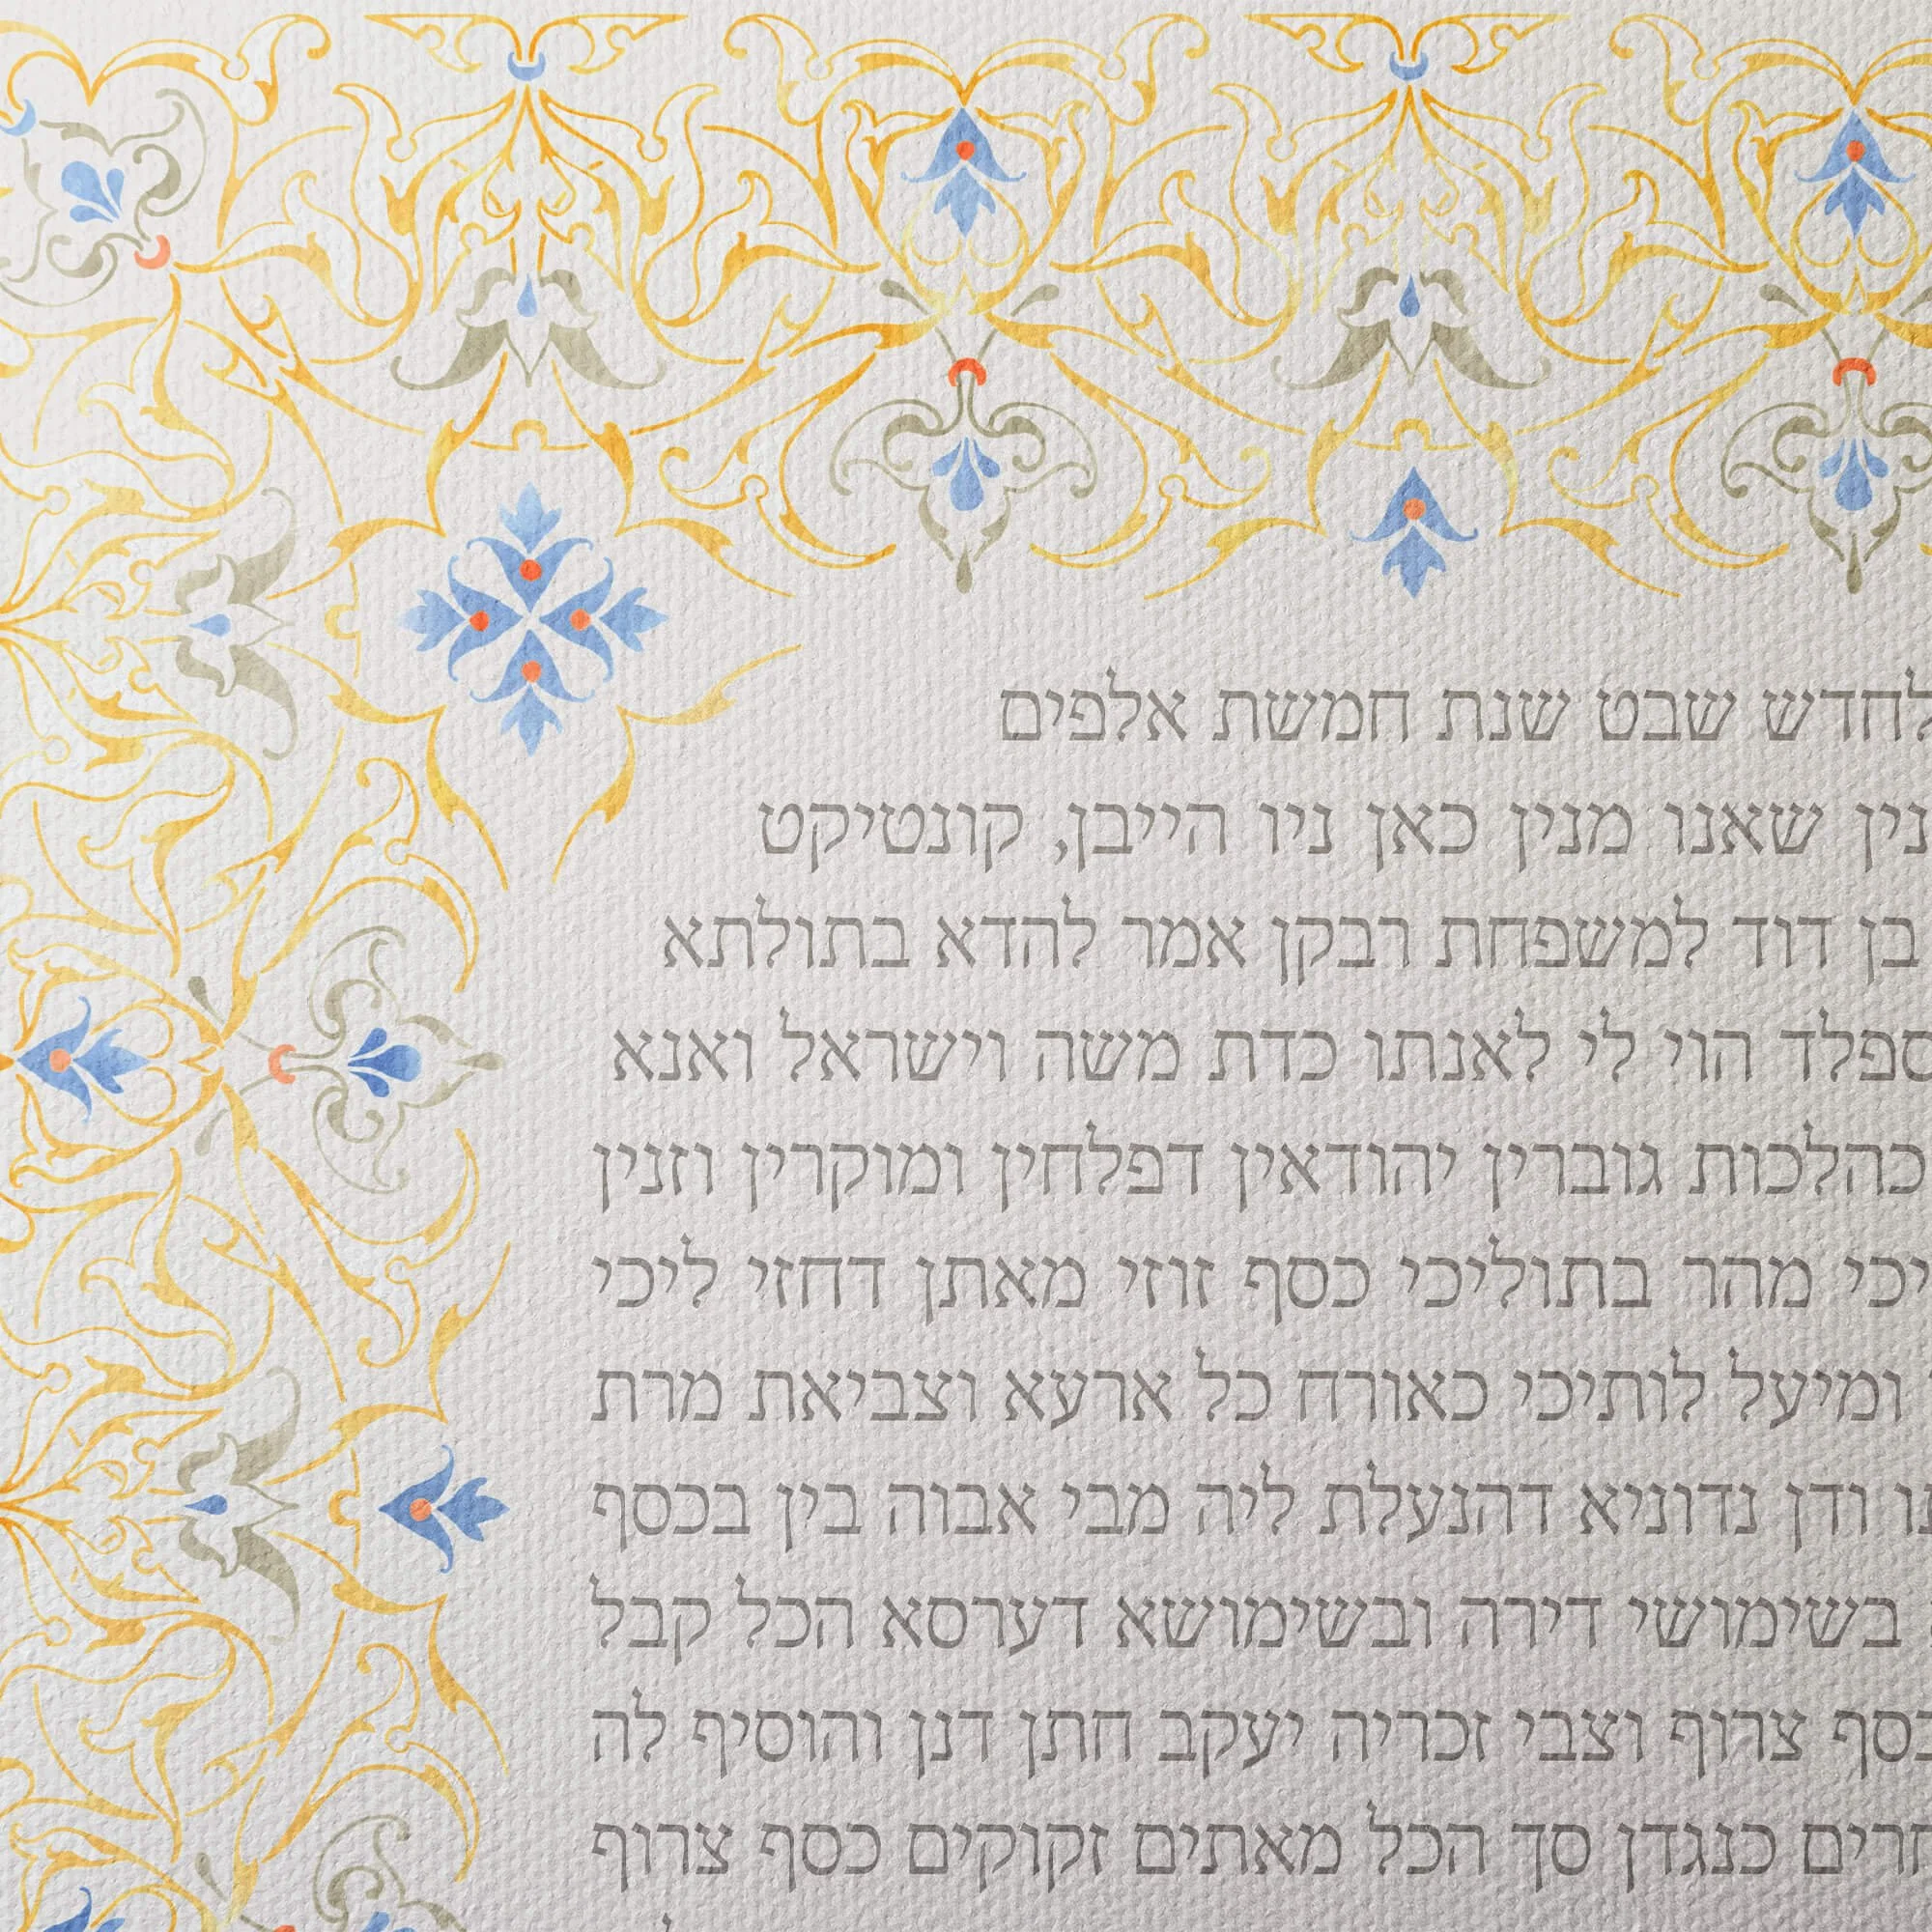 לחדש שבט שנת חמשת אלפים
נין שאנו מנין כאן ניו הייבן, קונטיקט
בן דוד למשפחת רבקן אמר להדא בתולתא
ספלד הוי לי לאנתו כדת משה וישראל ואנא
כהלכות גוברין יהודאין דפלחין ומוקרין וזנין
יכי מהר בתוליכי כסף זוזי מאתן דחזי ליכי
ומיעל לותיכי כאורח כל ארעא וצביאת מרת
ודן נדוניא דהנעלת ליה מבי אבוה בין בכסף
בשימושי דירה ובשימושא דערסא הכל קבל
כסף צרוף וצבי זכריה יעקב חתן דנן והוסיף לה
חרים כנגדן סך הכל מאתים זקוקים כסף צרוף